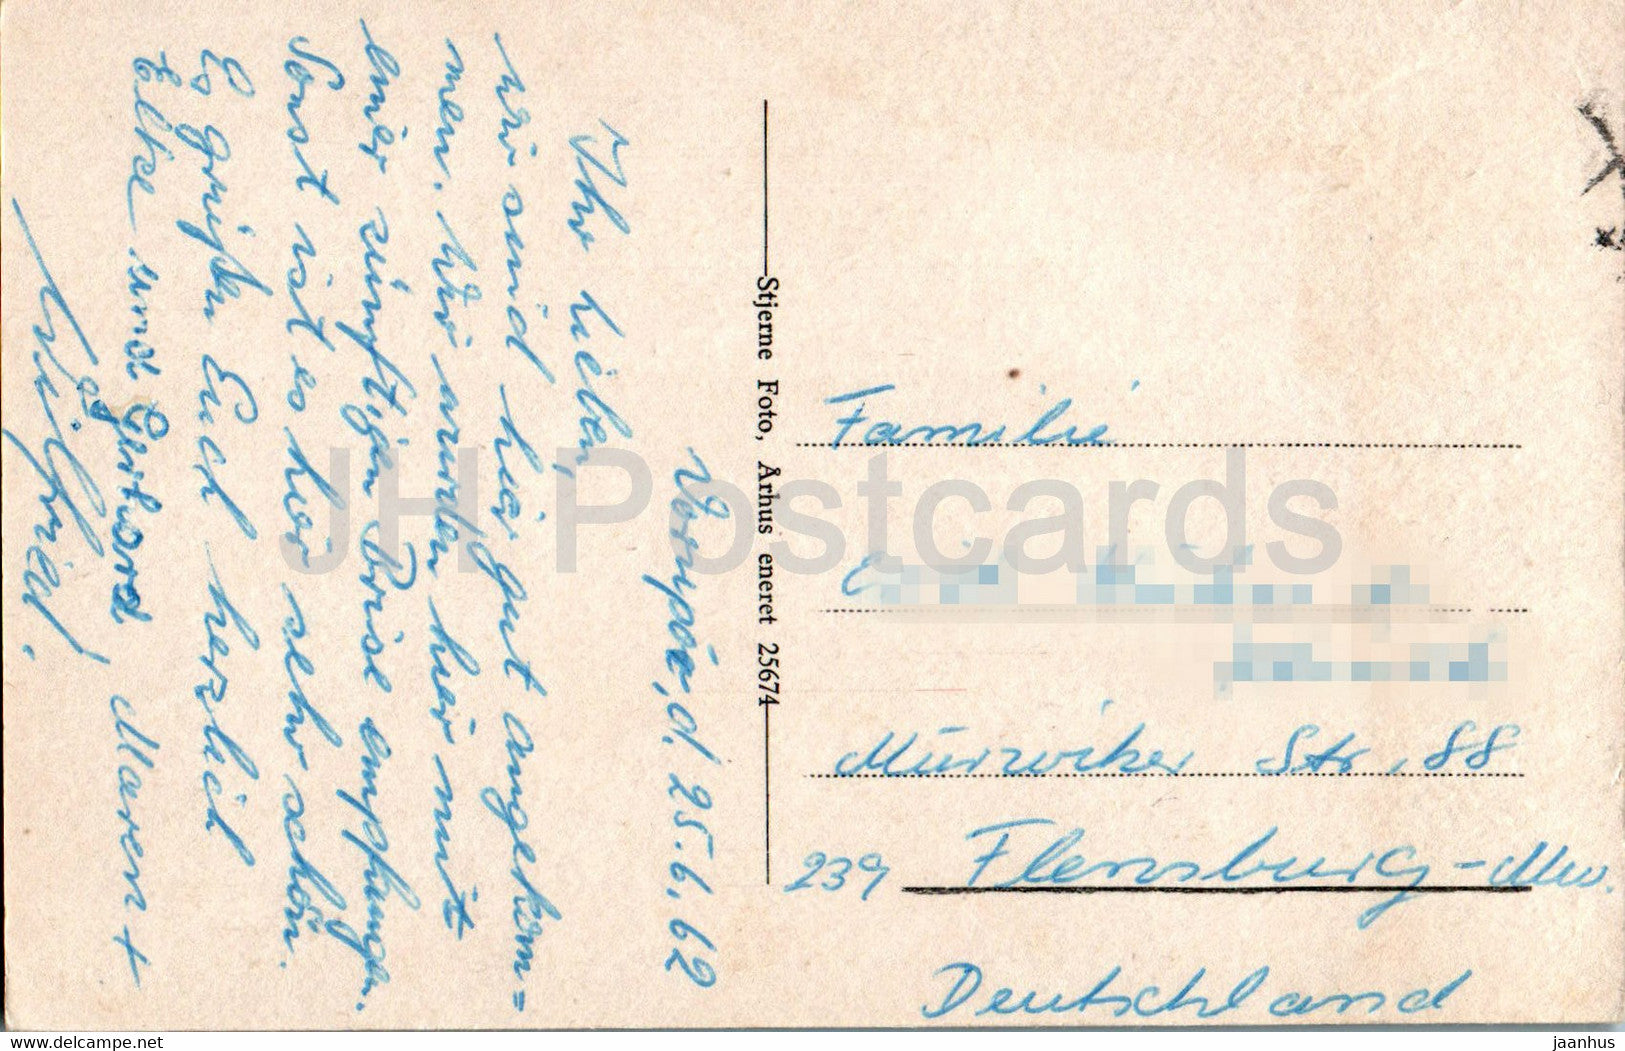 Vorupör, d. 25.6.62
Ihr Lieben,
wir sind hier gut angekom=
men. Wir wurden hier mit
einer zünftigen Brise empfangen.
Sonst ist es hier sehr schön.
Es grüßen Euch herzlich
Elke und Gerhard, Maren +
Wilfried.
Stjerne Foto, Århus eneret 25674
Familie
Mürwiker Str. 88
239 Flensburg-Mw.
Deutschland
JH Postcards
www.delcampe.net
jaanhus